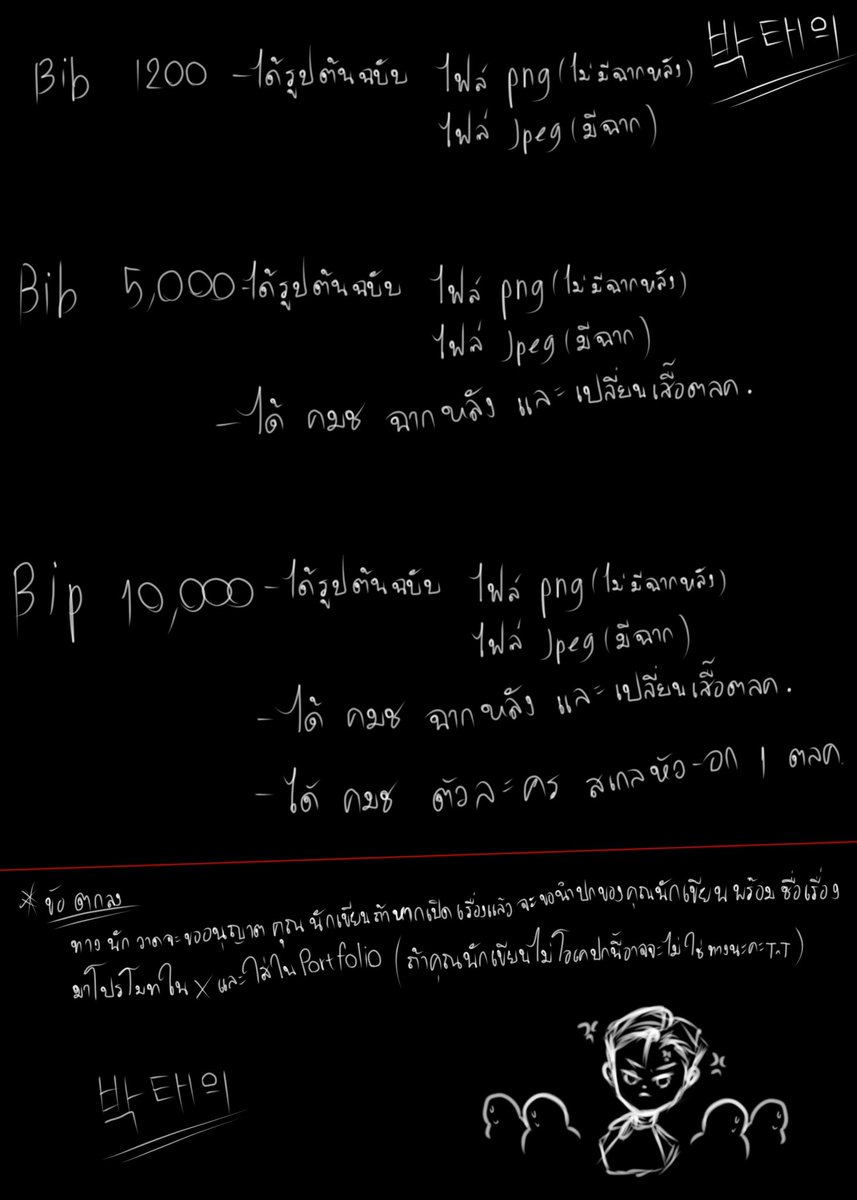 박태의
Bib 1200 -ได้รูปต้นฉบับ ไฟล์ png (ไม่มีฉากหลัง)
ไฟล์ Jpeg (มีฉาก)
Bib 5,000-ได้รูปต้นฉบับ ไฟล์ png (ไม่มีฉากหลัง)
ไฟล์ Jpeg (มีฉาก)
-ได้ คมช ฉากหลัง และเปลี่ยนเสื้อตลค.
Bip 10,000 -ได้รูปต้นฉบับ ไฟล์ png (ไม่มีฉากหลัง)
ไฟล์ Jpeg (มีฉาก)
-ได้ คมช ฉากหลัง และเปลี่ยนเสื้อตลค.
-ได้ คมช ตัวละคร สเกลหัว-อก 1 ตลค.
* ข้อตกลง
ทางนักวาดจะขออนุญาต คุณนักเขียนถ้าหากเปิดเรื่องแล้ว จะขอนำปกของคุณนักเขียน พร้อม ชื่อเรื่อง
มาโปรโมทใน X และใส่ใน Portfolio (ถ้าคุณนักเขียนไม่โอเคปกนี้อาจจะไม่ใช่ทางนะคะT^T)
박태의